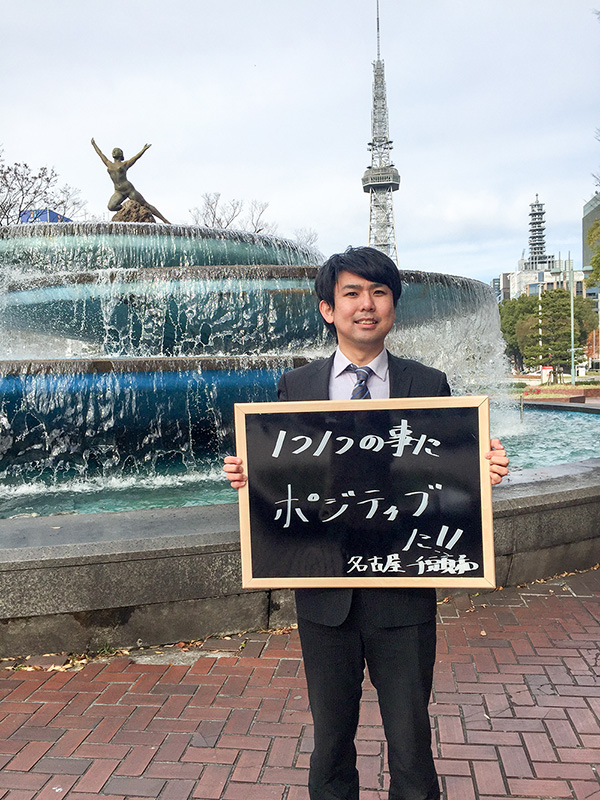 1つ1つの事に
ポジティブ
に!!
名古屋